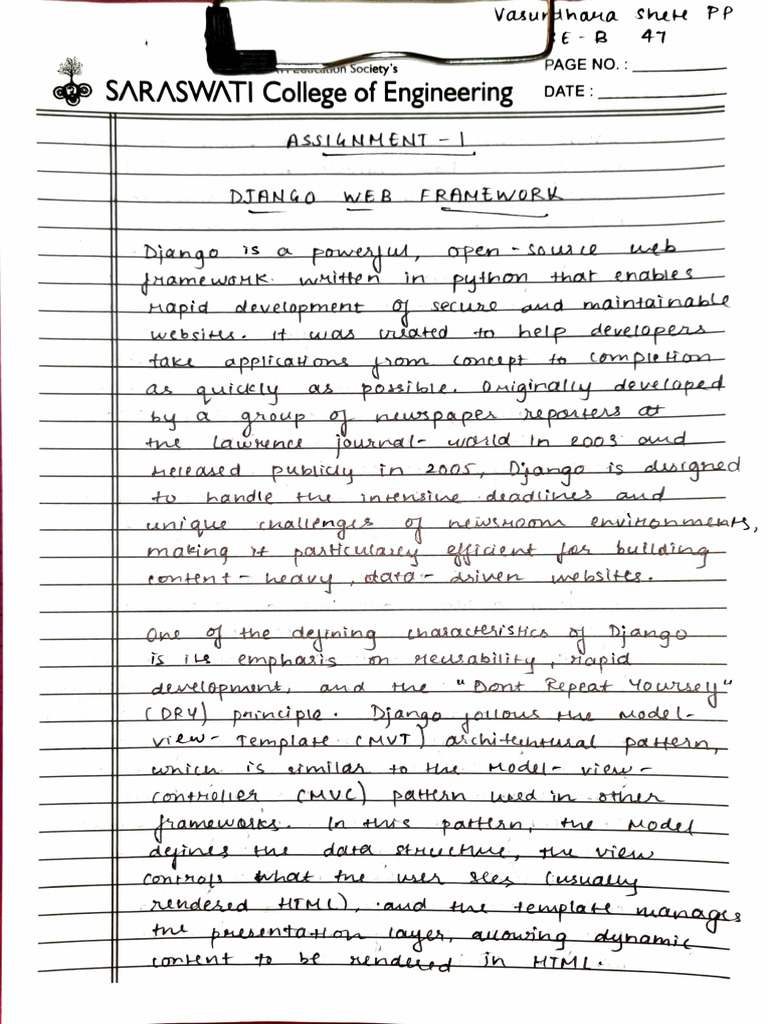 Vasundhara Shete PP
E - B 47
Education Society's
SARASWATI College of Engineering
PAGE NO. :
DATE :
ASSIGNMENT - 1
DJANGO WEB FRAMEWORK
Django is a powerful, open-source web
framework written in python that enables
rapid development of secure and maintainable
websites. It was created to help developers
take applications from concept to completion
as quickly as possible. Originally developed
by a group of newspaper reporters at
the Lawrence journal-world in 2003 and
released publicly in 2005, Django is designed
to handle the intensive deadlines and
unique challenges of newsroom environments,
making it particularly efficient for building
content-heavy, data-driven websites.
One of the defining characteristics of Django
is its emphasis on reusability, rapid
development, and the "Dont Repeat Yourself"
(DRY) principle. Django follows the Model-
View-Template (MVT) architectural pattern,
which is similar to the Model-View-
Controller (MVC) pattern used in other
frameworks. In this pattern, the Model
defines the data structure, the view
controls what the user sees (usually
rendered HTML), and the template manages
the presentation layer, allowing dynamic
content to be rendered in HTML.